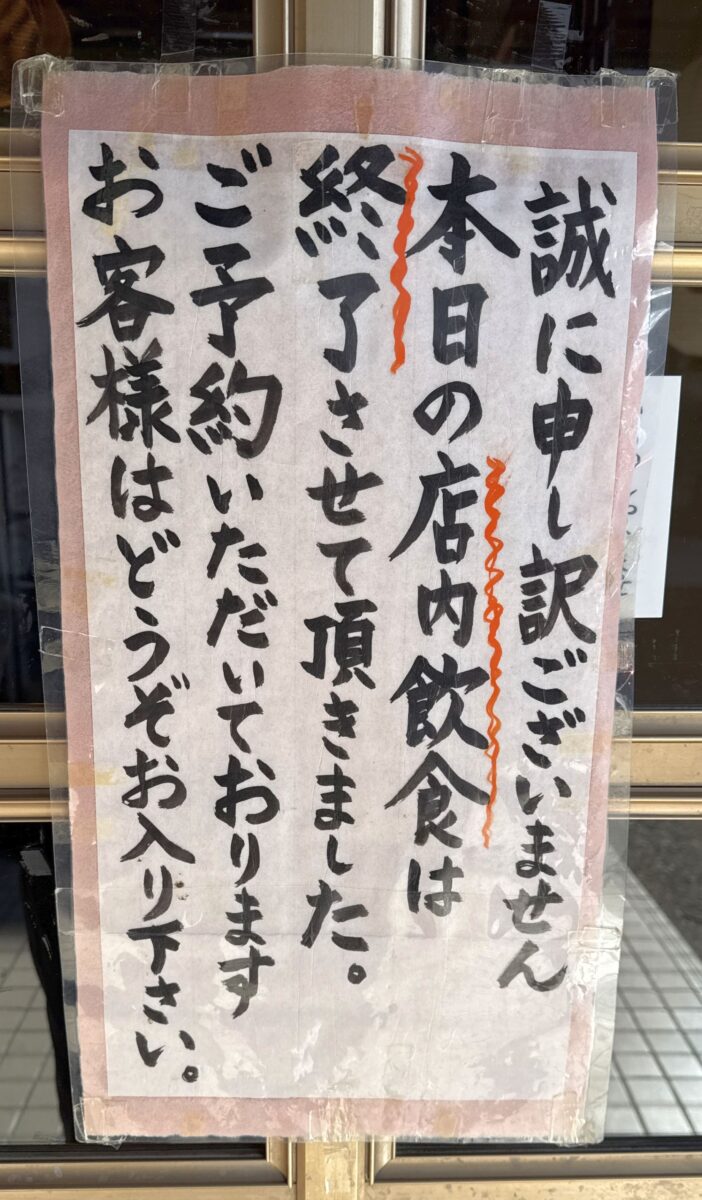 誠に申し訳ございません
本日の店内飲食は
終了させて頂きました。
ご予約いただいております
お客様はどうぞお入り下さい。